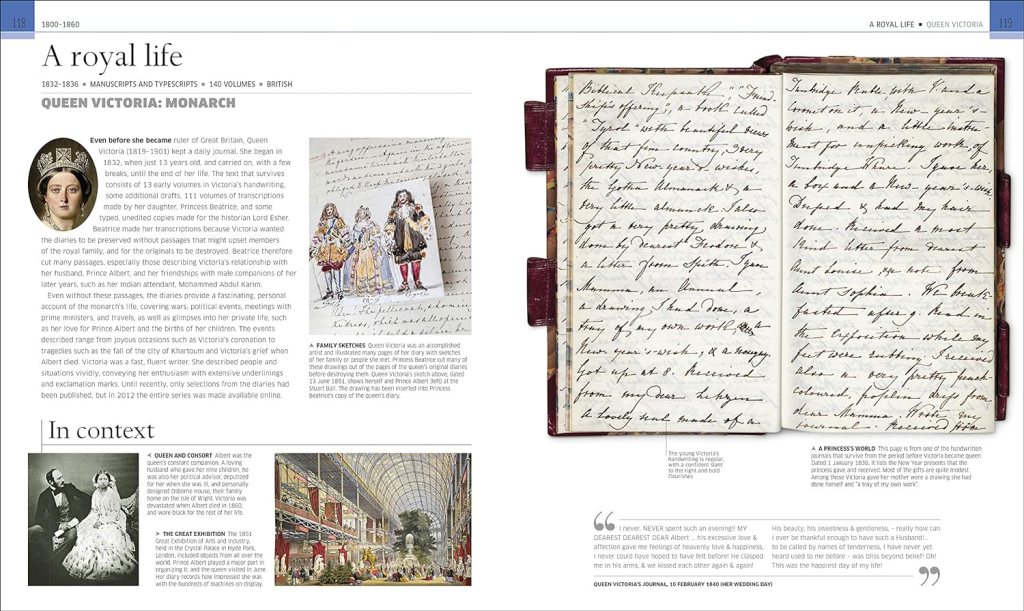 118
1800–1860
A ROYAL LIFE ■ QUEEN VICTORIA
119
A royal life
1832–1836 ■ MANUSCRIPTS AND TYPESCRIPTS ■ 140 VOLUMES ■ BRITISH
QUEEN VICTORIA: MONARCH
Even before she became ruler of Great Britain, Queen
Victoria (1819–1901) kept a daily journal. She began in
1832, when just 13 years old, and carried on, with a few
breaks, until the end of her life. The text that survives
consists of 13 early volumes in Victoria's handwriting,
some additional drafts, 111 volumes of transcriptions
made by her daughter, Princess Beatrice, and some
typed, unedited copies made for the historian Lord Esher.
Beatrice made her transcriptions because Victoria wanted
the diaries to be preserved without passages that might upset members
of the royal family, and for the originals to be destroyed. Beatrice therefore
cut many passages, especially those describing Victoria's relationship with
her husband, Prince Albert, and her friendships with male companions of her
later years, such as her Indian attendant, Mohammed Abdul Karim.
Even without these passages, the diaries provide a fascinating, personal
account of the monarch's life, covering wars, political events, meetings with
prime ministers, and travels, as well as glimpses into her private life, such
as her love for Prince Albert and the births of her children. The events
described range from joyous occasions such as Victoria's coronation to
tragedies such as the fall of the city of Khartoum and Victoria's grief when
Albert died. Victoria was a fast, fluent writer. She described people and
situations vividly, conveying her enthusiasm with extensive underlinings
and exclamation marks. Until recently, only selections from the diaries had
been published, but in 2012 the entire series was made available online.
▲ FAMILY SKETCHES Queen Victoria was an accomplished
artist and illustrated many pages of her diary with sketches
of her family or people she met. Princess Beatrice cut many of
these drawings out of the pages of the queen's original diaries
before destroying them. Queen Victoria's sketch above, dated
13 June 1851, shows herself and Prince Albert (left) at the
Stuart Ball. The drawing has been inserted into Princess
Beatrice's copy of the queen's diary.
In context
◄ QUEEN AND CONSORT Albert was the
queen's constant companion. A loving
husband who gave her nine children, he
was also her political advisor, deputized
for her when she was ill, and personally
designed Osborne House, their family
home on the Isle of Wight. Victoria was
devastated when Albert died in 1860,
and wore black for the rest of her life.
► THE GREAT EXHIBITION The 1851
Great Exhibition of Arts and Industry,
held in the Crystal Palace in Hyde Park,
London, included objects from all over the
world. Prince Albert played a major part in
organizing it, and the queen visited in June.
Her diary records how impressed she was
with the hundreds of machines on display.
a book called
"Tyrol" with beautiful views
of that fine country,
New year's wishes,
the Gotha Almanack & a
very little almanack. I also
got a very pretty drawing
done by dearest Feodore &
a letter from Späth. I gave
Mamma, an Annual
a drawing I had done, a
tray of my own work & a
New year's-wish, & a
Got up at 8. Received
from my dear Lehzen
a lovely seal made of a
Tunbridge with V. and a
on it, a New-year's
wish, and a little instru-
ment for unpicking work of
Tunbridge Ware. I gave her
a box and a New-year's-wish.
Dressed & had my hair
done. Received a most
kind letter from dearest
Aunt Louise, & a note from
Aunt Sophia. We break-
fasted after 9. Read in
the exposition while my
feet were rubbing. I received
also a very pretty peach-
coloured, poplin dress from
dear Mamma. Wrote my
journal. Received from
The young Victoria's
handwriting is regular,
with a confident slant
to the right and bold
flourishes
▲ A PRINCESS'S WORLD This page is from one of the handwritten
journals that survive from the period before Victoria became queen.
Dated 1 January 1836, it lists the New Year presents that the
princess gave and received. Most of the gifts are quite modest.
Among those Victoria gave her mother were a drawing she had
done herself and "a tray of my own work".
“ I never, NEVER spent such an evening!! MY
DEAREST DEAREST DEAR Albert ... his excessive love &
affection gave me feelings of heavenly love & happiness,
I never could have hoped to have felt before! He clasped
me in his arms, & we kissed each other again & again!
His beauty, his sweetness & gentleness, – really how can
I ever be thankful enough to have such a Husband!...
to be called by names of tenderness, I have never yet
heard used to me before – was bliss beyond belief! Oh!
This was the happiest day of my life! ”
QUEEN VICTORIA'S JOURNAL, 10 FEBRUARY 1840 (HER WEDDING DAY)